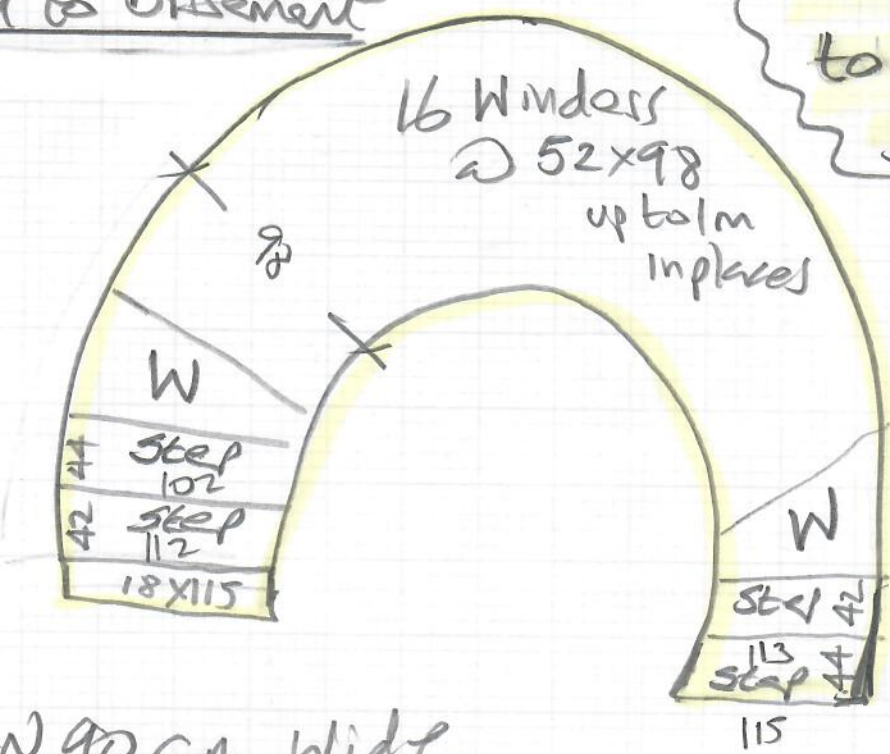 to Basement
to
16 Winders
@ 52x98
up to 1m
in places
98
W
44 Step
102
42 Step
112
18x115
W
Step 42
113
Step 44
115
90 cm wide